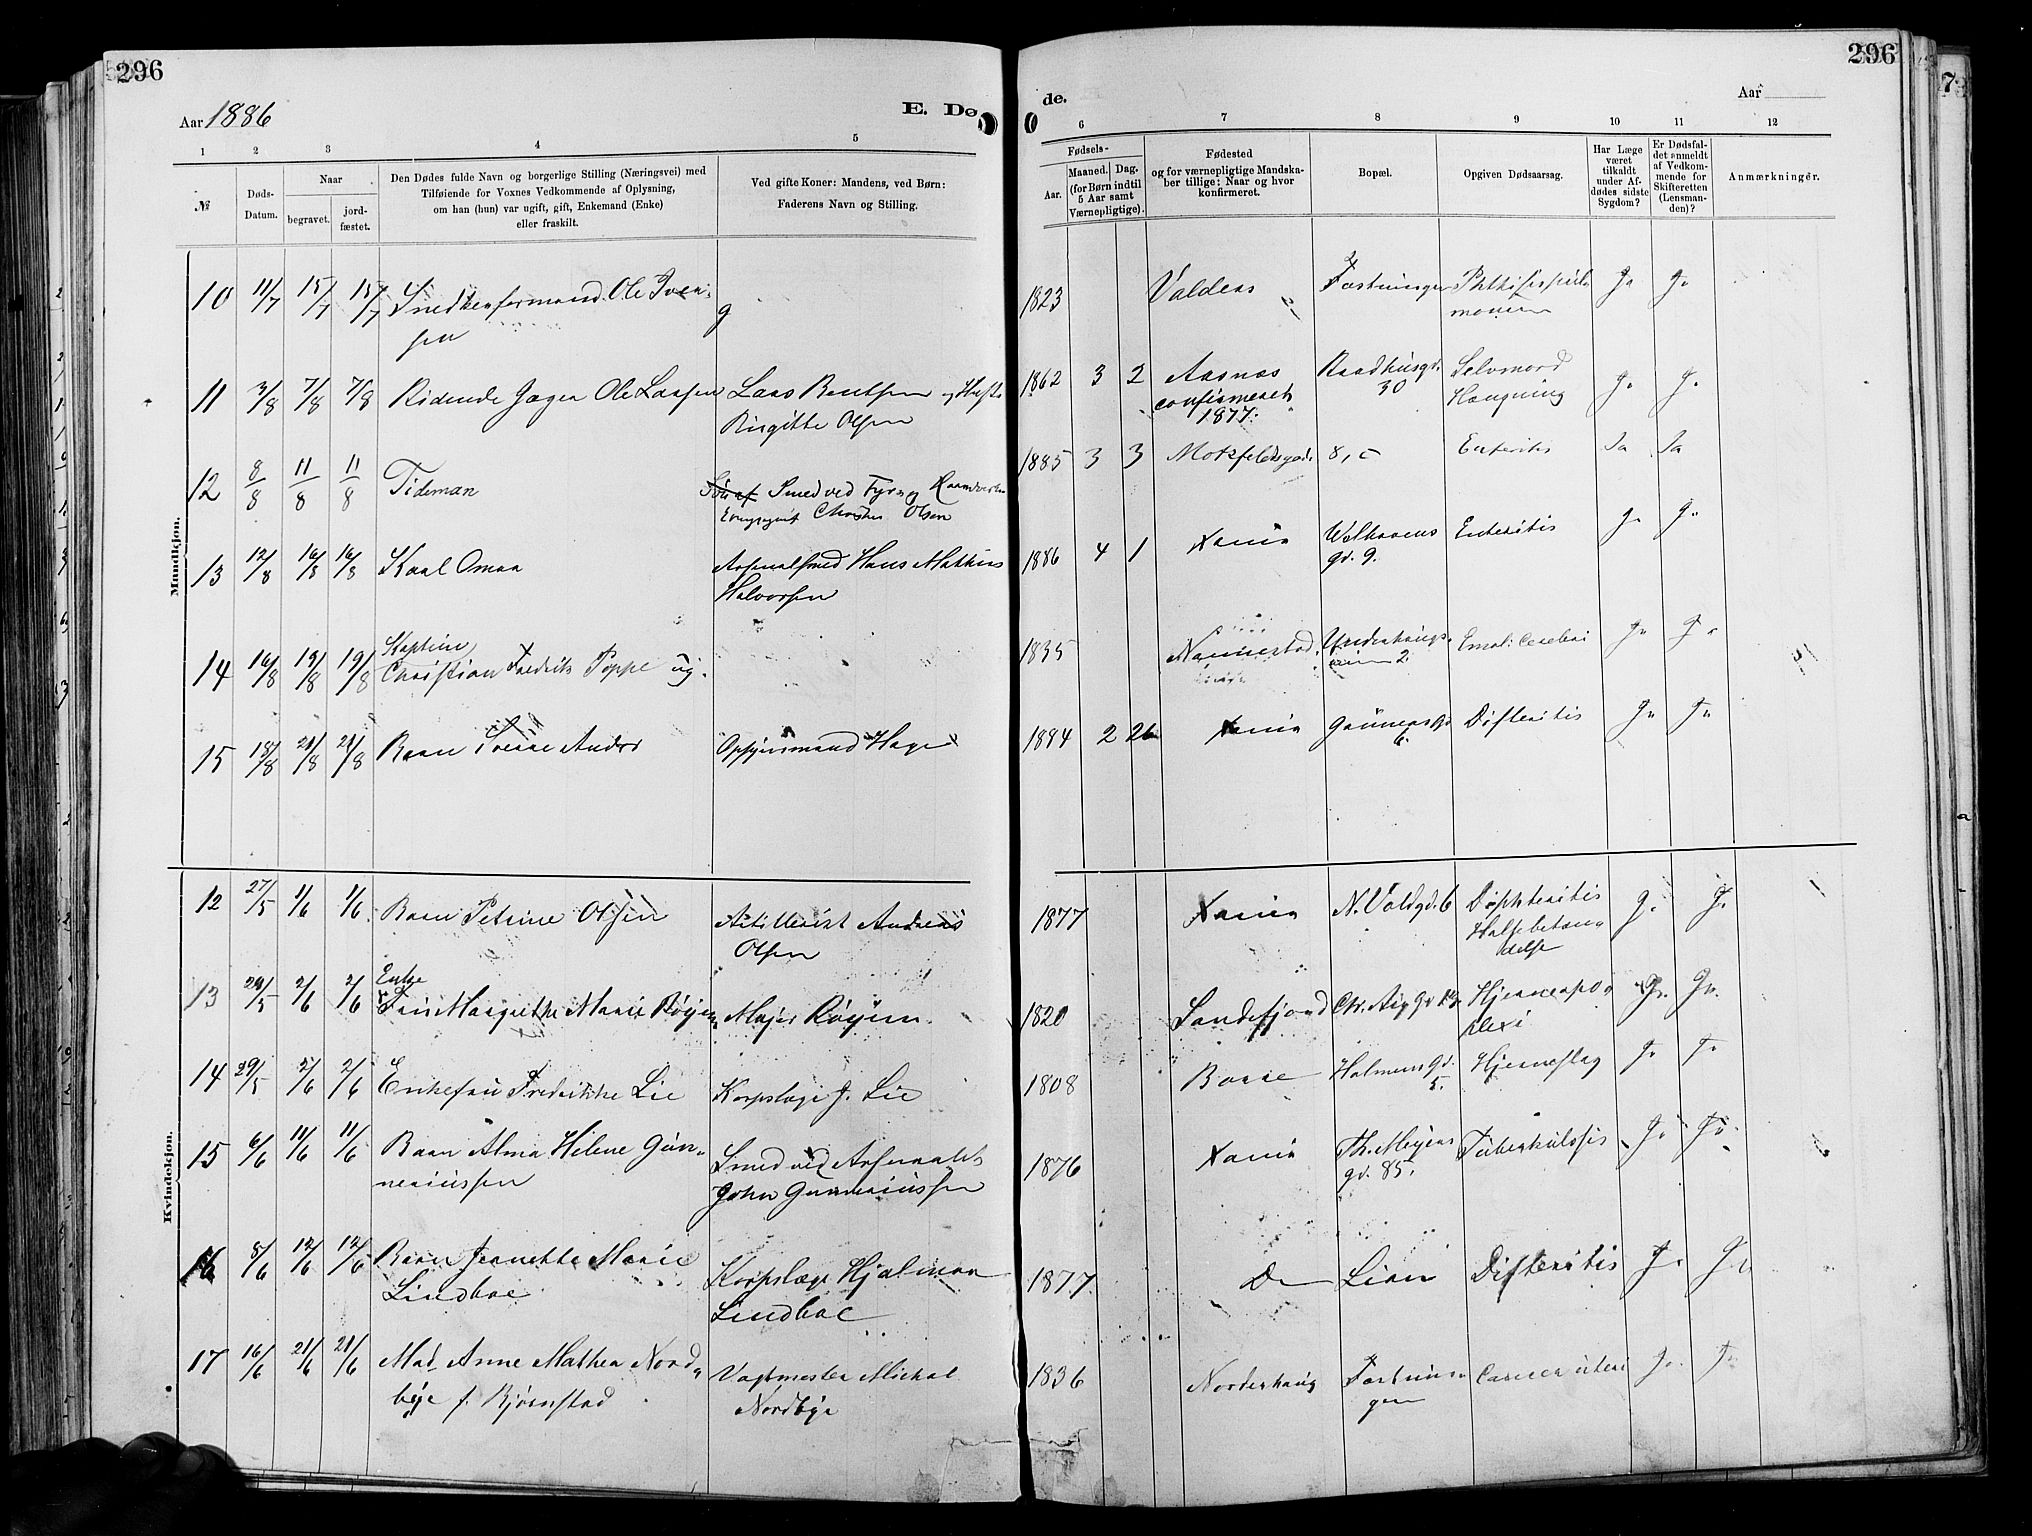 296
296
Aar 1886
E. Dø
de.
Aar
1
2
3
4
5
6
7
8
9
10
11
12
№
Døds-
Datum.
Naar
begravet.
jord-
fæstet.
Den Dødes fulde Navn og borgerlige Stilling (Næringsvei) med
Tilføiende for Voxnes Vedkommende af Oplysning,
om han (hun) var ugift, gift, Enkemand (Enke)
eller fraskilt.
Ved gifte Koner: Mandens, ved Børn:
Faderens Navn og Stilling.
Fødsels-
Aar.
Maaned.
Dag.
(for Børn indtil
5 Aar samt
Værnepligtige).
Fødested
og for værnepligtige Mandska-
ber tillige: Naar og hvor
konfirmeret.
Bopæl.
Opgiven Dødsaarsag.
Har Læge
været
tilkaldt
under Af-
dødes sidste
Sygdom?
Er Dødsfal-
det anmeldt
af Vedkom-
mende for
Skifteretten
(Lensman-
den)?
Anmærkninger.
Mandkjøn.
10 11/7 15/7 15/7 Snedkerformand Ole Iver-
sen g
1823 Valders Fæstningen Phthisis pul-
monum Ja Ja
11 3/8 7/8 7/8 Ridende Jæger Ole Larsen Lars Bentsen og Hustr.
Birgitte Olsen
1862 3 2 Aasnæs Raadhusgd. Selvmord
confirmeret 30 Hængning Ja Ja
1877.
12 8/8 11/8 11/8 Tideman Søn af Smed ved Fyrv og
Olsen
1885 3 3 8, c Enteritis Ja Ja
13 12/8 16/8 16/8 Karl Omar Arsenalsmed Hans Mathias
Halvorsen
1886 4 1 Xania Welhavens Enteritis Ja Ja
gd. 9.
14 16/8 19/8 19/8 Kaptein
Christian Fredrik Poppe ug.
1835 Nannestad Ja Ja
2
15 18/8 21/8 21/8 Barn Sverre Andor Opsynsmand Hager
1884 2 26 Xania Grünersgd Difteritis Ja Ja
6.
Kvindekjøn.
12 27/5 1/6 1/6. Barn Petrine Olsen Artillerist Andreas
Olsen
1877 Xania N. Voldgd. 6 Diphteritis Ja. Ja.
Halsbetæn-
delse
13 29/5 2/6 2/6 Enke
Fru Margrethe Marie Røyem Major Røyem.
1820 Sandefjord Chr. Aug Gd 13 Hjerneapo- Ja. Ja.
plexi
14 29/5 2/6 2/6 Enkefru Fredrikke Lie Korpslæge J. Lie
1808 Borre Holmens Gd. Hjerneslag Ja Ja
5.
15 6/6 11/6 11/6 Barn Alma Helene Gun-
neriussen Smed ved Arsenalet
John Gunneriussen
1876 Xania Th. Meyers Tuberkulosis Ja Ja
gd. 85.
16 8/6 12/6 12/6 Barn Jeanette Marie
Lindboe Korpslæge Hjalmar
Lindboe
1877 Do Lian Difteritis Ja Ja
17 16/6 21/6 21/6 Mad. Anne Mathea Nord-
bye f. Bjørnstad Vagtmester Mickal
Nordbye
1836 Norderhaug Fæstnin- Cancer uteri Ja Ja
gen